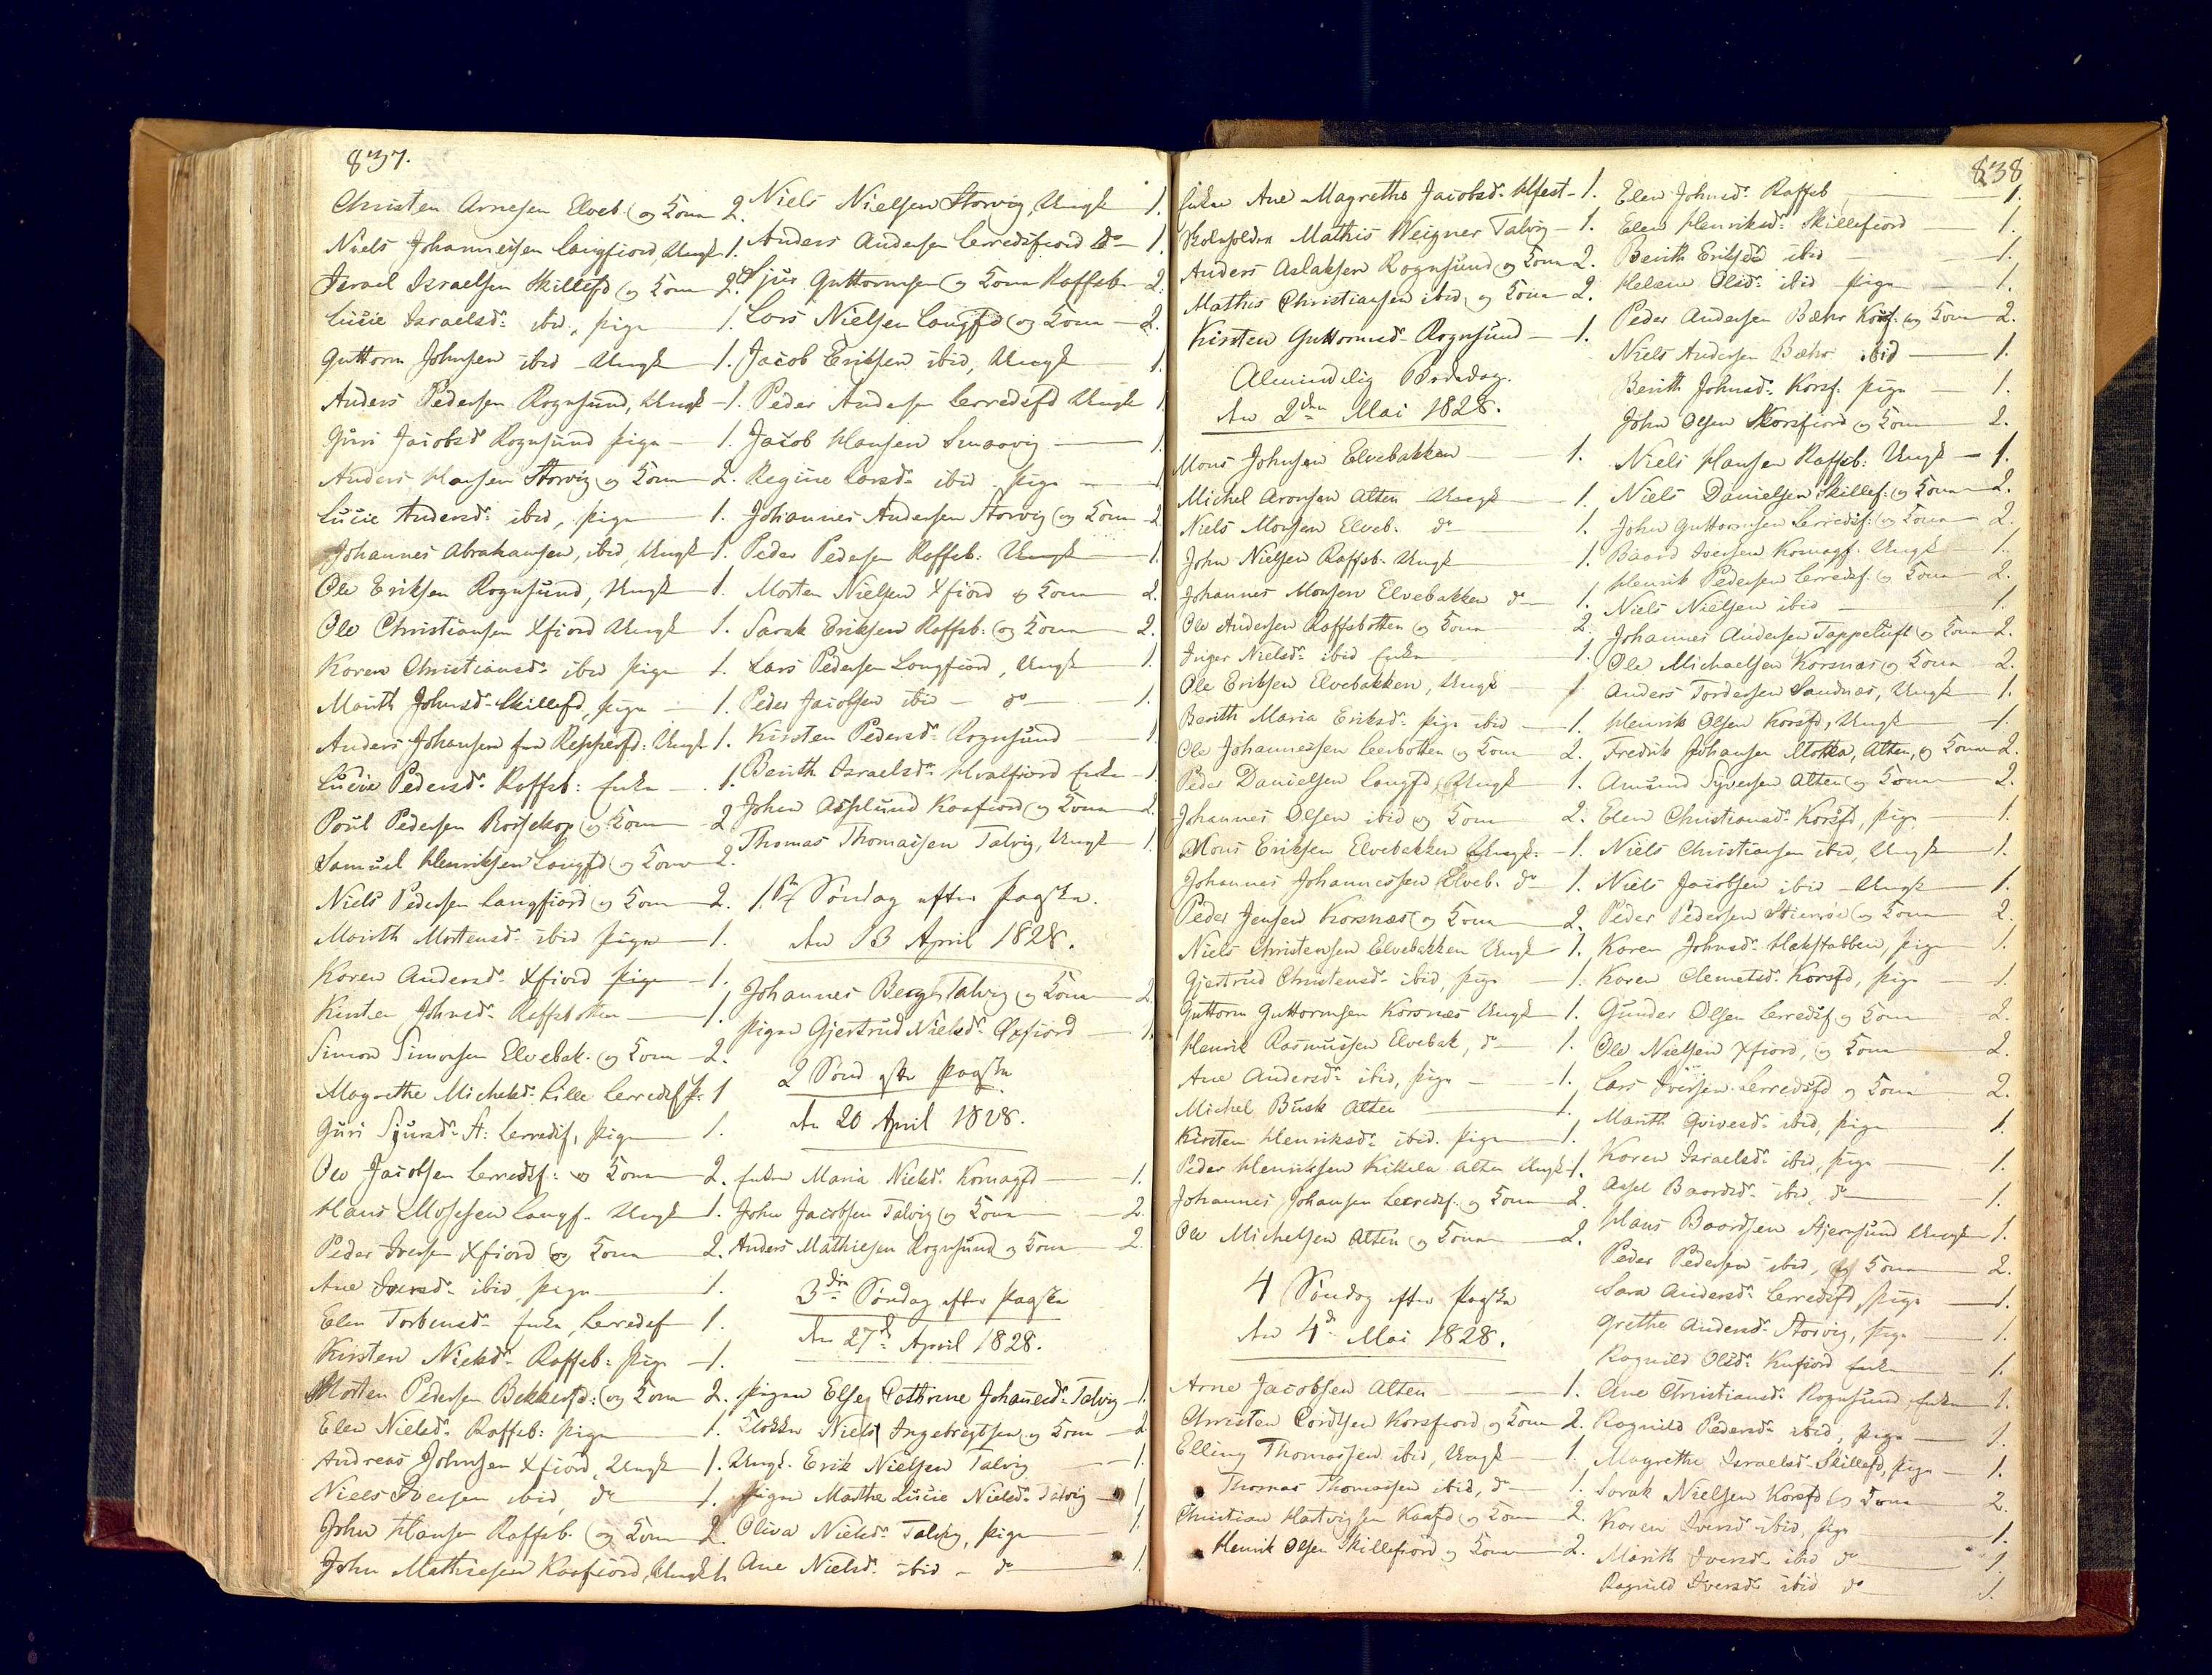 837.
Christen Arnesen Elveb og Kone 2.
Niels Johannessen Langfiord, Ungk 1.
Israel Israelsen Skillefd og Kone 2.
Lucie Israelsd. ibid, pige 1.
Guttorm Johnsen ibid Ungk 1.
Anders Pedersen Rognsund, Ungk 1.
Guri Jacobsd Rognsund pige 1.
Anders Hansen Storvig og Kone 2.
Lucie Andersd. ibid, pige 1.
Johannes Abrahamsen, ibid, Ungk 1.
Ole Eriksen Rognsund, Ungk 1.
Ole Christiansen Xfiord Ungk 1.
Karen Christiansd. ibid pige 1.
Marith Johnsd. Skillefd, pige 1.
Anders Johansen fra Repperfd: Ungk 1.
Lucie Pedersd. Raffsb: Enke 1.
Poul Pedersen Bossekop og Kone 2
Samuel Henriksen Langfd og Kone 2.
Niels Pedersen Langfiord og Kone 2.
Marith Mortensd. ibid pige 1.
Karen Andersd. Xfiord pige 1.
Kirsten Johnsd. Raffsbotten 1.
Simon Simonsen Elvebak. og Kone 2.
Magrethe Michelsd. Lille Lerredsf p. 1
Guri Sjursd. St: Lerredsf, pige 1.
Ole Jacobsen Lerredsf: og Kone 2.
Hans Mosesen Langf. Ungk 1.
Peder Iversen Xfiord og Kone 2.
Ane Iversd. ibid, pige 1.
Elen Torbensd. Enke, Lerredsf 1.
Kirsten Nielsd. Raffsb: pige 1.
Morten Pedersen Bekkerfd: og Kone 2.
Elen Nielsd. Raffsb: pige 1.
Andreas Johnsen Xfiord, Ungk 1.
Niels Iversen ibid, do 1.
John Hansen Raffsb. og Kone 2.
John Mathiesen Kaafiord, Ungk 1.
Niels Nielsen Storvig, Ungk 1.
Anders Andersen Lerredsfiord do 1.
Sjur Guttormsen og Kone Raffsb. 2.
Lars Nielsen Langfd og Kone 2.
Jacob Eriksen ibid, Ungk 1.
Peder Andersen Lerredsfd Ungk 1
Jacob Hansen Smaavig 1.
Regine Larsd. ibid. pige 1
Johannes Andersen Storvig og Kone 2.
Peder Pedersen Raffsb: Ungk 1.
Morten Nielsen Xfiord og Kone 2.
Sarak Eriksen Raffsb: og Kone 2.
Lars Pedersen Langfiord, Ungk 1.
Peder Jacobsen ibid do 1.
Kirsten Pedersd. Rognsund 1
Berith Israelsd. Hvalfiord Enke 1
John Asplund Kaafiord og Kone 2.
Thomas Thomassen Talvig, Ungk 1.
1ste Søndag efter Paaske.
den 13 April 1828.
Johannes Berg Talvig og Kone 2.
Pigen Gjertrud Nielsd. Oxfiord 1.
2 Sønd efter Paaske
den 20 April 1828.
Enken Maria Nielsd. Komagfd 1.
John Jacobsen Talvig og Kone 2.
Anders Mathiesen Rognsund og Kone 2.
3die Søndag efter Paaske
den 27d April 1828.
Pigen Elsej Cathrine Johansd. Talvig 1.
Klokker Niels Ingebregtsen og Kone 2
Ungk. Erik Nielsen Talvig 1.
Pigen Marthe Lucie Nielsd. Talvig 1
Oliva Nielsd. Talvig, pige 1.
Ane Nielsd. ibid do 1.
838
Enken Ane Magrethe Jacobsd. 1.
Mathis Weigner Talvig 1.
Anders Aslaksen Rognsund og Kone 2.
Mathis Christiansen ibid og Kone 2.
Kirsten Guttormsd. Rognsund 1.
Almindelig Bededag.
den 2den Mai 1828.
Mons Johnsen Elvebakken 1.
Michel Aronsen Alten Ungk 1.
Niels Monsen Elveb. do 1.
John Nielsen Raffsb. Ungk 1.
Johannes Monsen Elvebakken do 1.
Ole Andersen Raffsbotten og Kone 2.
Inger Nielsd. ibid Enke 1.
Ole Eriksen Elvebakken, Ungk 1.
Berith Maria Eriksd. pige ibid 1.
Ole Johannessen Leerbotten og Kone 2.
Peder Danielsen Langfd, Ungk 1.
Johannes Olsen ibid og Kone 2.
Mons Eriksen Elvebakken Ungk. 1.
Johannes Johannessen Elveb. do 1.
Peder Jensen Korsnæs og Kone 2.
Niels Christensen Elvebakken Ungk 1.
Gjertrud Christensd. ibid, pige 1.
Guttorm Guttormsen Korsnæs Ungk 1.
Henrik Rasmussen Elvebak, do 1.
Ane Andersd. ibid, pige 1.
Michel Busk Alten 1.
Kirsten Henriksd. ibid. pige 1.
Peder Henriksen Kittila Alten Ungk 1.
Johannes Johansen Lerredsf. og Kone 2.
Ole Michelsen Alten og Kone 2.
4 Søndag efter Paaske
den 4d Mai 1828.
Arne Jacobsen Alten 1.
Christen Cordtsen Korsfiord og Kone 2.
Elling Thomassen ibid, Ungk 1.
Thomas Thomassen ibid, do 1.
Christian Hartvigsen Kaafd og Kone 2.
Henrik Olsen Skillefiord og Kone 2.
Elen Johnsd. Raffsb 1.
Elen Henriksd. Skillefiord 1.
Berith Eriksd. ibid 1.
Helene Olsd. ibid pige 1.
Peder Andersen Bæhr Korsf. og Kone 2.
Niels Andersen Bæhr ibid 1.
Berith Johnsd. Korsf. pige 1.
John Olsen Korsfiord og Kone 2.
Niels Hansen Raffsb: Ungk 1.
Niels Danielsen Skillef. og Kone 2.
John Guttormsen Lerredsf: og Kone 2.
Baard Iversen Komagf. Ungk 1.
Henrik Pedersen Lerredsf. og Kone 2.
Niels Nielsen ibid 1.
Johannes Andersen Tappeluft og Kone 2.
Ole Michaelsen Korsnæs og Kone 2.
Anders Tordersen Sandnæs, Ungk 1.
Henrik Olsen Korsfd, Ungk 1.
Fredrik Johansen Motka, Alten, og Kone 2.
Amund Syversen Alten og Kone 2.
Elen Christiansd. Korsfd, pige 1.
Niels Christiansen ibid, Ungk 1.
Niels Jacobsen ibid Ungk 1.
Peder Pedersen Stiernøe og Kone 2.
Karen Johnsd. Hakstabben, pige 1.
Karen Clemetsd. Korsfd, pige 1.
Gunder Olsen Lerredsf og Kone 2.
Ole Nielsen Xfiord, og Kone 2.
Lars Iversen Lerredsfd og Kone 2.
Marith ibid, pige 1.
Karen Israelsd. ibid, pige 1.
Assel Baardsd. ibid, do 1.
Hans Baardsen Ungk 1.
Peder Pedersen ibid, og Kone 2.
Sara Andersd. Lerredsfd, pige 1.
Grethe Andersd. Storvig, pige 1.
Ragnild Olsd. Kufiord Enke 1.
Ane Christiansd. Rognsund, Enke 1.
Ragnild Pedersd. ibid, pige 1.
Magrethe Israelsd. Skillefd, pige 1.
Sarak Nielsen Korsfd og Kone 2.
Karen Iversd. ibid, pige 1.
Marith Iversd. ibid do 1.
Ragnild Iversd. ibid do 1.